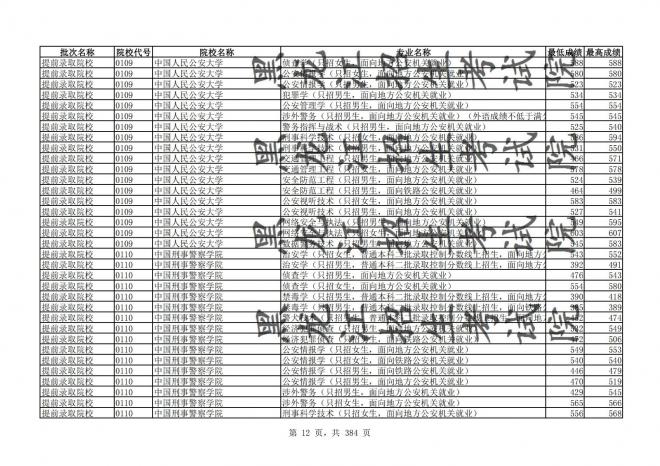 批次名称 院校代号 院校名称 专业名称 最低成绩 最高成绩
提前录取院校 0109 中国人民公安大学 侦查学(只招女生，面向地方公安机关就业) 588 588
提前录取院校 0109 中国人民公安大学 公安情报学(只招女生，面向地方公安机关就业) 580 580
提前录取院校 0109 中国人民公安大学 公安情报学(只招男生，面向地方公安机关就业) 523 523
提前录取院校 0109 中国人民公安大学 犯罪学(只招男生，面向地方公安机关就业) 534 534
提前录取院校 0109 中国人民公安大学 公安管理学(只招男生，面向地方公安机关就业) 554 554
提前录取院校 0109 中国人民公安大学 涉外警务(只招男生，面向地方公安机关就业)(外语成绩不低于满分 545 545
提前录取院校 0109 中国人民公安大学 警务指挥与战术(只招男生，面向地方公安机关就业) 525 540
提前录取院校 0109 中国人民公安大学 刑事科学技术(只招女生，面向地方公安机关就业) 594
提前录取院校 0109 中国人民公安大学 刑事科学技术(只招男生，面向地方公安机关就业) 550
提前录取院校 0109 中国人民公安大学 交通管理工程(只招男生，面向地方公安机关就业) 571
提前录取院校 0109 中国人民公安大学 交通管理工程(只招女生，面向地方公安机关就业) 578 578
提前录取院校 0109 中国人民公安大学 安全防范工程(只招男生，面向地方公安机关就业) 524 539
提前录取院校 0109 中国人民公安大学 安全防范工程(只招男生，面向铁路公安机关就业) 464 499
提前录取院校 0109 中国人民公安大学 公安视听技术(只招女生，面向地方公安机关就业) 583 583
提前录取院校 0109 中国人民公安大学 公安视听技术(只招男生，面向地方公安机关就业) 527 541
提前录取院校 0109 中国人民公安大学 网络安全与执法(只招男生，面向地方公安机关就业) 595
提前录取院校 0109 中国人民公安大学 网络安全与执法(只招女生，面向地方公安机关就业) 607
提前录取院校 0109 中国人民公安大学 数据警务技术(只招男生，面向地方公安机关就业) 583
提前录取院校 0110 中国刑事警察学院 治安学(只招女生，普通本科二批录取控制分数线上招生，面向地方公 543 552
提前录取院校 0110 中国刑事警察学院 治安学(只招男生，普通本科二批录取控制分数线上招生，面向地方公 392 491
提前录取院校 0110 中国刑事警察学院 侦查学(只招男生，面向地方公安机关就业) 476 543
提前录取院校 0110 中国刑事警察学院 侦查学(只招女生，面向地方公安机关就业) 554 580
提前录取院校 0110 中国刑事警察学院 禁毒学(只招男生，普通本科二批录取控制分数线上招生，面向地方公 390 418
提前录取院校 0110 中国刑事警察学院 禁毒学(只招男生，普通本科二批录取控制分数线上招生，面向铁路公 389
提前录取院校 0110 中国刑事警察学院 (只招男生，普通本科二批录取控制分数线上招生，面向地方公 474
提前录取院校 0110 中国刑事警察学院 经济犯罪侦查(只招男生，面向地方公安机关就业) 549
提前录取院校 0110 中国刑事警察学院 经济犯罪侦查(只招男生，面向铁路公安机关就业) 506
提前录取院校 0110 中国刑事警察学院 公安情报学(只招女生，面向地方公安机关就业) 549 553
提前录取院校 0110 中国刑事警察学院 公安情报学(只招女生，面向铁路公安机关就业) 540 540
提前录取院校 0110 中国刑事警察学院 公安情报学(只招男生，面向铁路公安机关就业) 446 479
提前录取院校 0110 中国刑事警察学院 公安情报学(只招男生，面向地方公安机关就业) 470 519
提前录取院校 0110 中国刑事警察学院 涉外警务(只招男生，面向地方公安机关就业) 429 545
提前录取院校 0110 中国刑事警察学院 涉外警务(只招女生，面向地方公安机关就业) 565 566
提前录取院校 0110 中国刑事警察学院 刑事科学技术(只招女生，面向地方公安机关就业) 556 568
黑龙江招生考试院
黑龙江招生考试院
黑龙江招生考试院
黑龙江招生考试院
第 12 页，共 384 页